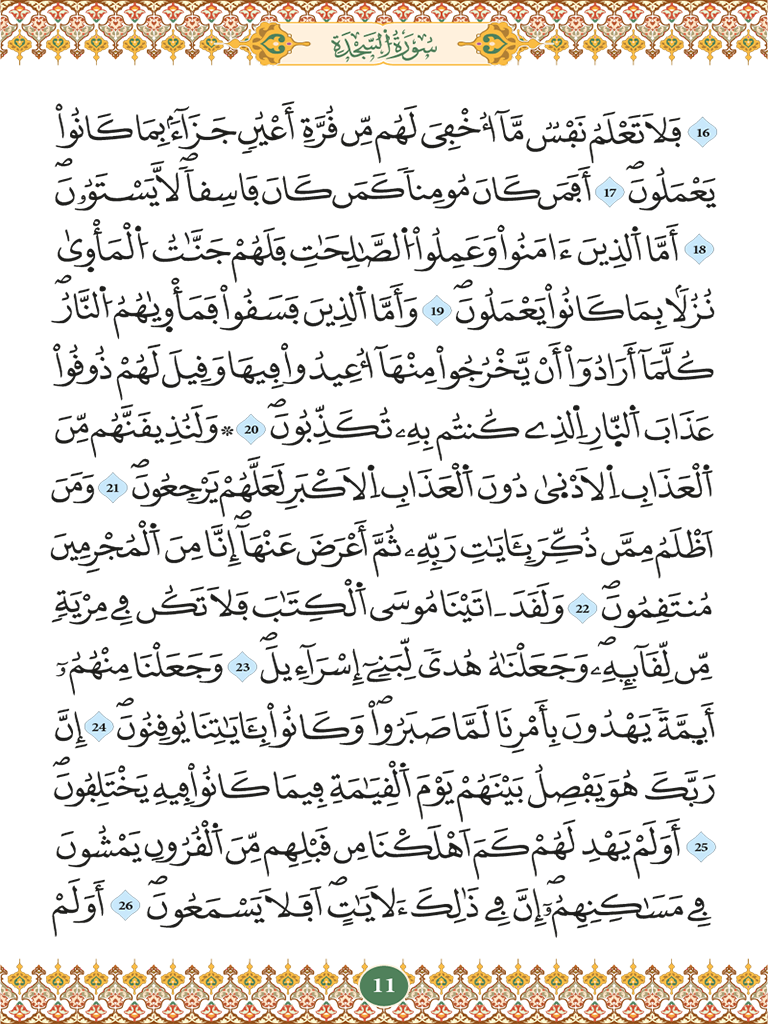 سُورَةُ السَّجْدَةِ
16 فَلَا تَعْلَمُ نَفْسٌ مَّآ أُخْفِيَ لَهُم مِّن قُرَّةِ أَعْيُنٍ جَزَآءَۢ بِمَا كَانُواْ
يَعْمَلُونَۖ 17 أَفَمَن كَانَ مُومِناٗ كَمَن كَانَ فَاسِقاٗۖ لَّا يَسْتَوُۥنَۖ
18 أَمَّا اَ۬لذِينَ ءَامَنُواْ وَعَمِلُواْ اُ۬لصَّٰلِحَٰتِ فَلَهُمْ جَنَّٰتُ اُ۬لْمَأْو۪ىٰ
نُزُلَاۢ بِمَا كَانُواْ يَعْمَلُونَۖ 19 وَأَمَّا اَ۬لذِينَ فَسَقُواْ فَمَأْو۪يٰهُمُ اُ۬لنَّارُۖ
كُلَّمَآ أَرَادُوٓاْ أَنْ يَّخْرُجُواْ مِنْهَآ أُعِيدُواْ فِيهَا وَقِيلَ لَهُمْ ذُوقُواْ
عَذَابَ اَ۬لنّ۪ارِ اِ۬لذِے كُنتُم بِهِۦ تُكَذِّبُونَۖ 20 ۞ وَلَنُذِيقَنَّهُم مِّنَ
اَ۬لْعَذَابِ اِ۬لَادْن۪ىٰ دُونَ اَ۬لْعَذَابِ اِ۬لَاكْبَرِ لَعَلَّهُمْ يَرْجِعُونَۖ 21 وَمَنَ
اَظْلَمُ مِمَّن ذُكِّرَ بِـَٔايَٰتِ رَبِّهِۦ ثُمَّ أَعْرَضَ عَنْهَآۖ إِنَّا مِنَ اَ۬لْمُجْرِمِينَ
مُنتَقِمُونَۖ 22 وَلَقَدَ اٰتَيْنَا مُوسَى اَ۬لْكِتَٰبَ فَلَا تَكُن فِے مِرْيَةٖ
مِّن لِّقَآئِهِۦۖ وَجَعَلْنَٰهُ هُديٗ لِّبَنِےٓ إِسْرَآءِيلَۖ 23 وَجَعَلْنَا مِنْهُمُۥٓ
أَئِمَّةٗ يَهْدُونَ بِأَمْرِنَا لَمَّا صَبَرُواْۖ وَكَانُواْ بِـَٔايَٰتِنَا يُوقِنُونَۖ 24 إِنَّ
رَبَّكَ هُوَ يَفْصِلُ بَيْنَهُمْ يَوْمَ اَ۬لْقِيَٰمَةِ فِيمَا كَانُواْ فِيهِ يَخْتَلِفُونَۖ
25 أَوَلَمْ يَهْدِ لَهُمْ كَمَ اَهْلَكْنَا مِن قَبْلِهِم مِّنَ اَ۬لْقُرُونِ يَمْشُونَ
فِے مَسَٰكِنِهِمُۥٓۖ إِنَّ فِے ذَٰلِكَ ءَلَايَٰتٍۖ اَفَلَا يَسْمَعُونَۖ 26 أَوَلَمْ
11